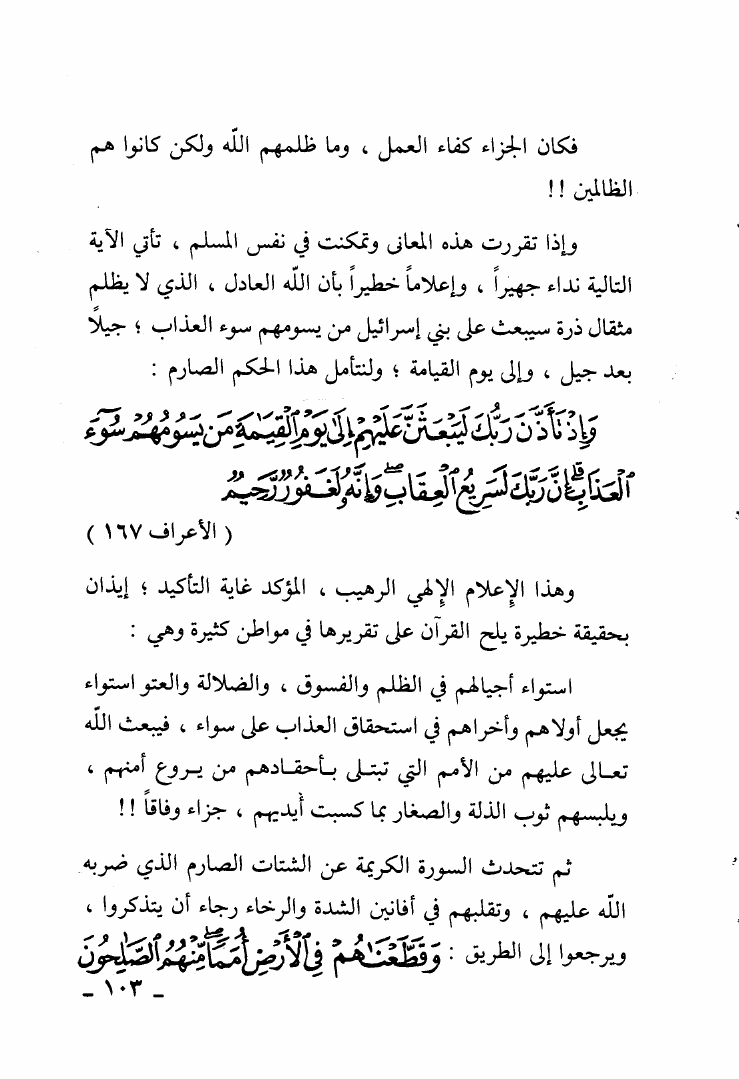 فكان الجزاء كفاء العمل ، وما ظلمهم اللّه ولكن كانوا هم
الظالمين !!
وإذا تقررت هذه المعانى وتمكنت في نفس المسلم ، تأتي الآية
التالية نداء جهيراً ، وإعلاماً خطيراً بأن اللّه العادل ، الذي لا يظلم
مثقال ذرة سيبعث على بني إسرائيل من يسومهم سوء العذاب ؛ جيلاً
بعد جيل ، وإلى يوم القيامة ؛ ولنتأمل هذا الحكم الصارم :
وَإِذْ تَأَذَّنَ رَبُّكَ لَيَبْعَثَنَّ عَلَيْهِمْ إِلَىٰ يَوْمِ ٱلْقِيَٰمَةِ مَن يَسُومُهُمْ سُوٓءَ
ٱلْعَذَابِۗ إِنَّ رَبَّكَ لَسَرِيعُ ٱلْعِقَابِۖ وَإِنَّهُۥ لَغَفُورٌ رَّحِيمٌ
( الأعراف ١٦٧ )
وهذا الإعلام الإلهي الرهيب ، المؤكد غاية التأكيد ؛ إيذان
بحقيقة خطيرة يلح القرآن على تقريرها في مواطن كثيرة وهي :
استواء أجيالهم في الظلم والفسوق ، والضلالة والعتو استواء
يجعل أولاهم وأخراهم في استحقاق العذاب على سواء ، فيبعث اللّه
تعـالى عليهم من الأمم التي تبتـلى بـأحقـادهم من يـروع أمنهم ،
ويلبسهم ثوب الذلة والصغار بما كسبت أيديهم ، جزاء وفاقاً !!
ثم تتحدث السورة الكريمة عن الشتات الصارم الذي ضربه
اللّه عليهم ، وتقلبهم في أفانين الشدة والرخاء رجاء أن يتذكروا ،
ويرجعوا إلى الطريق : وَقَطَّعْنَٰهُمْ فِى ٱلْأَرْضِ أُمَمًاۖ مِّنْهُمُ ٱلصَّٰلِحُونَ
- ١٠٣ -